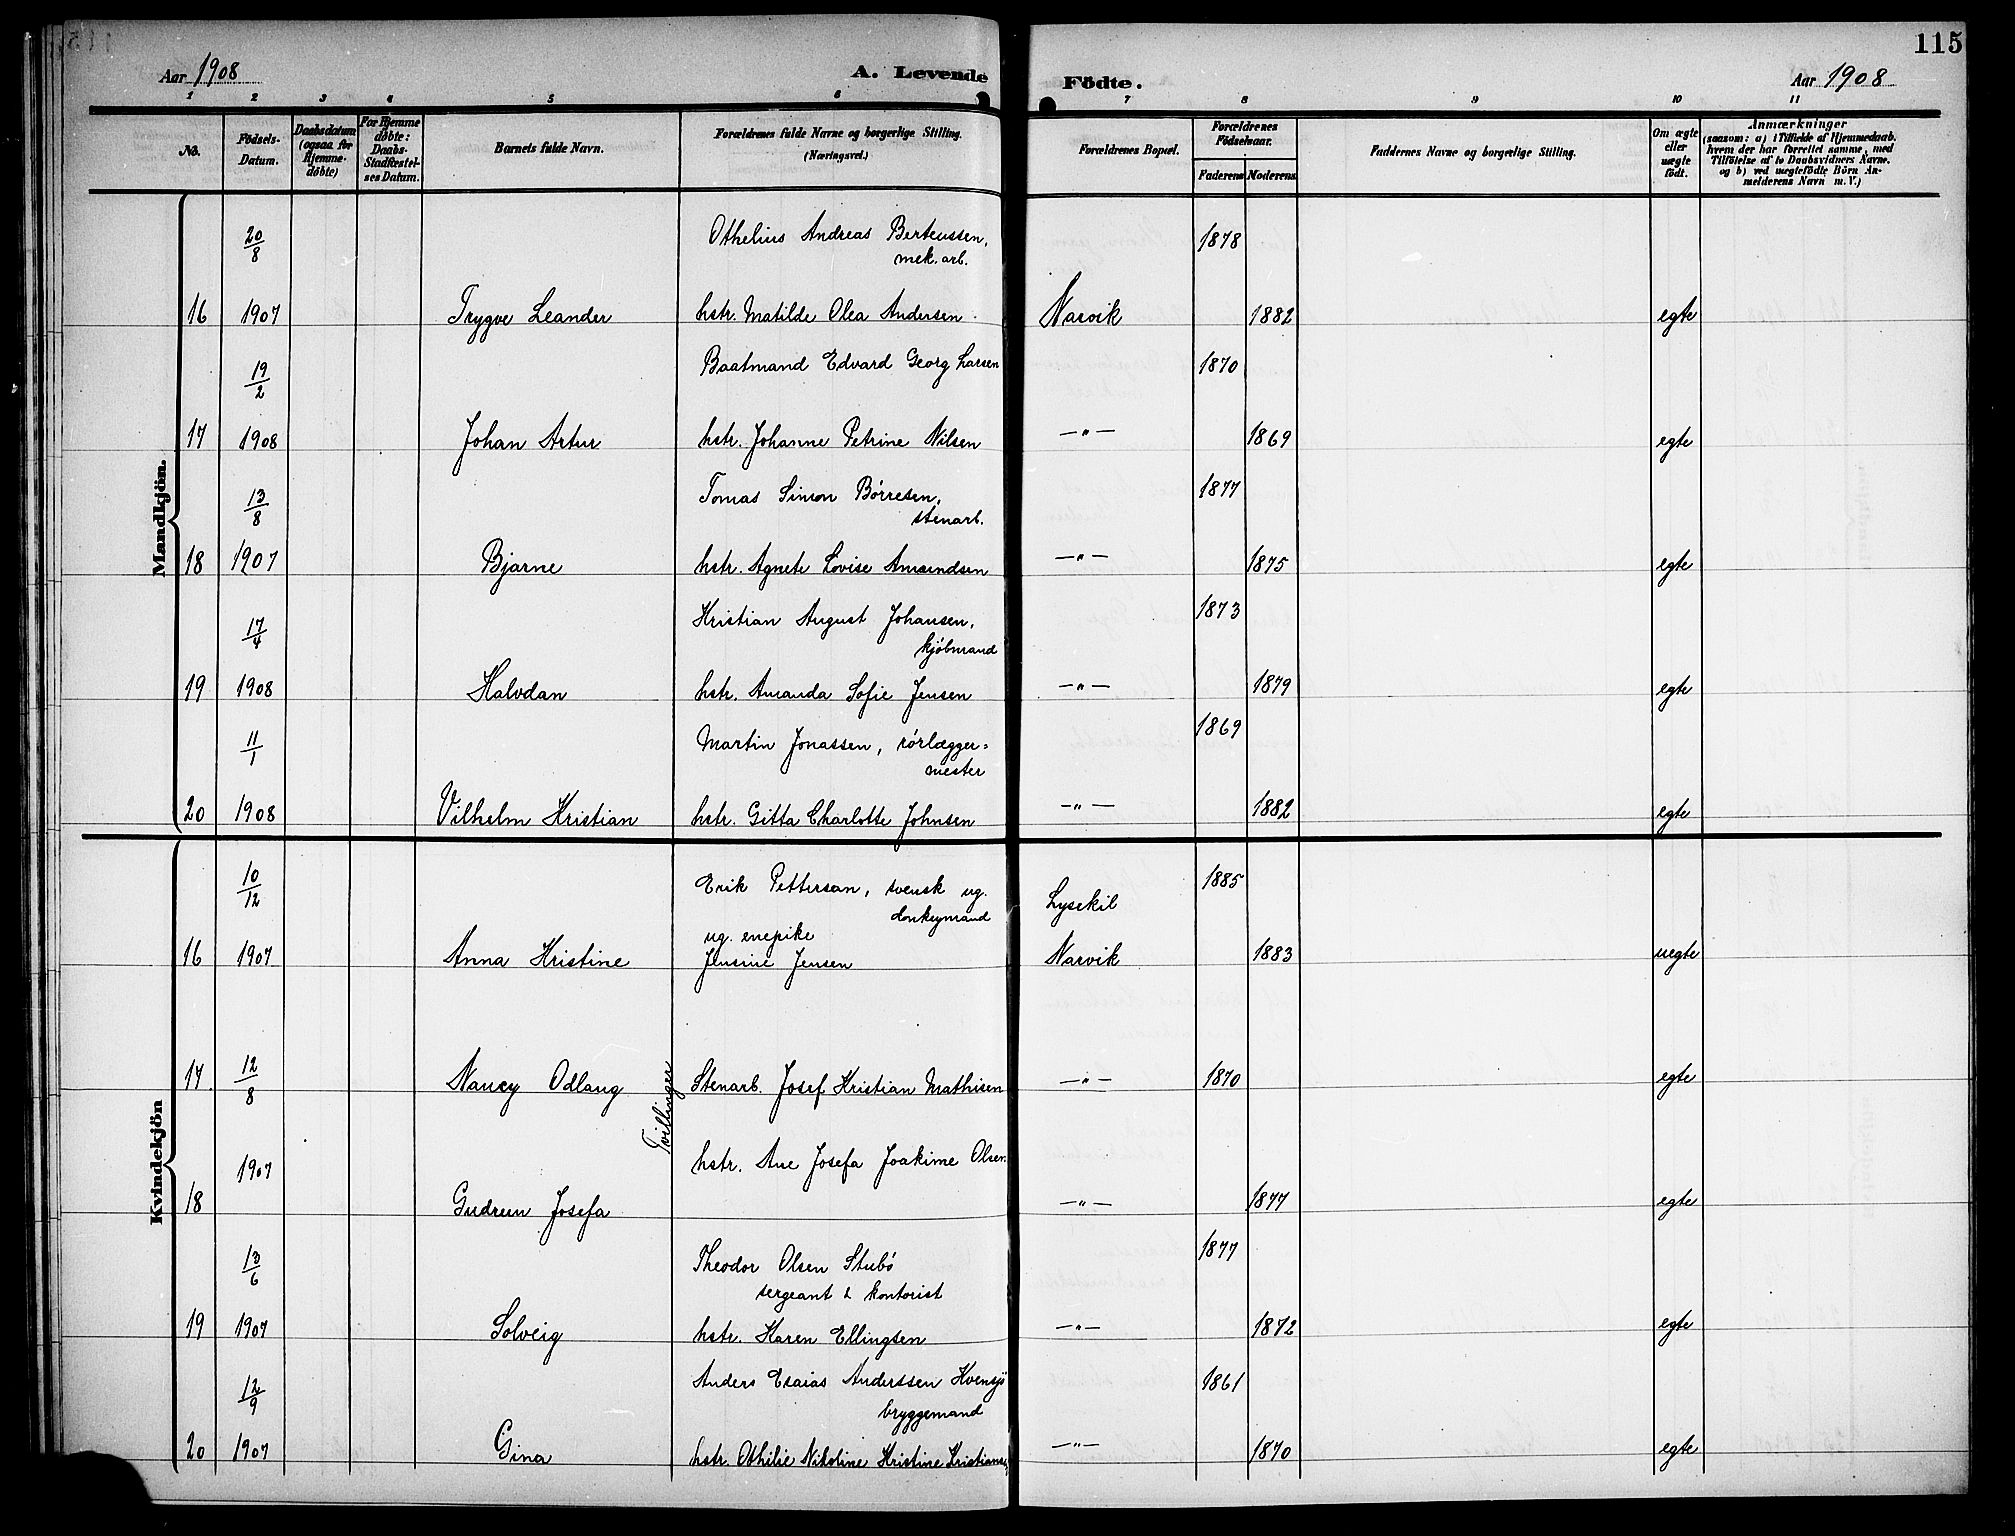 115
Aar 1908
A. Levende
Födte.
Aar 1908
1 2 3 4 5 6 7 8 9 10 11
No.
Födsels-Datum.
Daabsdatum (ogsaa for Hjemme-döbte)
For Hjemme döbte: Daabs-Stadfæstel-ses Datum.
Barnets fulde Navn.
Forældrenes fulde Navne og borgerlige Stilling. (Næringsvei.)
Forældrenes Bopæl.
Forældrenes Födselsaar.
Faderens Moderens
Faddernes Navne og borgerlige Stilling.
Om ægte eller uægte födt.
Anmærkninger
(saasom: a) i Tilfælde af Hjemmedaab,
hvem der har forrettet samme, med
Tilföielse af to Daabsvidners Navne.
og b) ved uægtefödte Börn An-
melderens Navn m. V.)
Mandkjön.
20/8 Othelius Andreas Berteussen, 1878
mek. arb.
16 1907 Trygve Leander hstr. Matilde Olea Andersen. Narvik 1882 egte
19/2 Baatmand Edvard Georg Larsen 1870
17 1908 Johan Artur hstr. Johanne Petrine Nilsen —"— 1869 egte
13/8 Tomas Simon Børresen, 1877
stenarb.
18 1907 Bjarne hstr. Agnete Lovise Amundsen —"— 1875 egte
17/4 Kristian August Johansen, 1873
kjøbmand
19 1908 Halvdan hstr. Amanda Sofie Jensen —"— 1879 egte
11/1 Martin Jonassen, rørlægger= 1869
mester
20 1908 Vilhelm Kristian hstr. Gitta Charlotte Johnsen —"— 1882 egte
Kvindekjön
10/12 Erik Petterson, svensk ug. Lysekil 1885
donkeymand
ug. enepike
16 1907 Anna Kristine Jensine Jensen Narvik 1883 uegte
17. 12/8 Nancy Odlaug Tvillinger Stenarb. Josef Kristian Mathisen —"— 1870 egte
1907 hstr. Ane Josefa Joakime Olsen
18 Gudrun Josefa —"— 1877 egte
13/6 Theodor Olsen Stubø 1877
sergeant & kontorist
19 1907 Solveig hstr. Karen Ellingsen —"— 1872 egte
12/9 Anders Esaias Anderssen Kvensjø 1861
bryggemand
20 1907 Gina hstr. Othilie Nikoline Kristine Kristiansen —"— 1870 egte